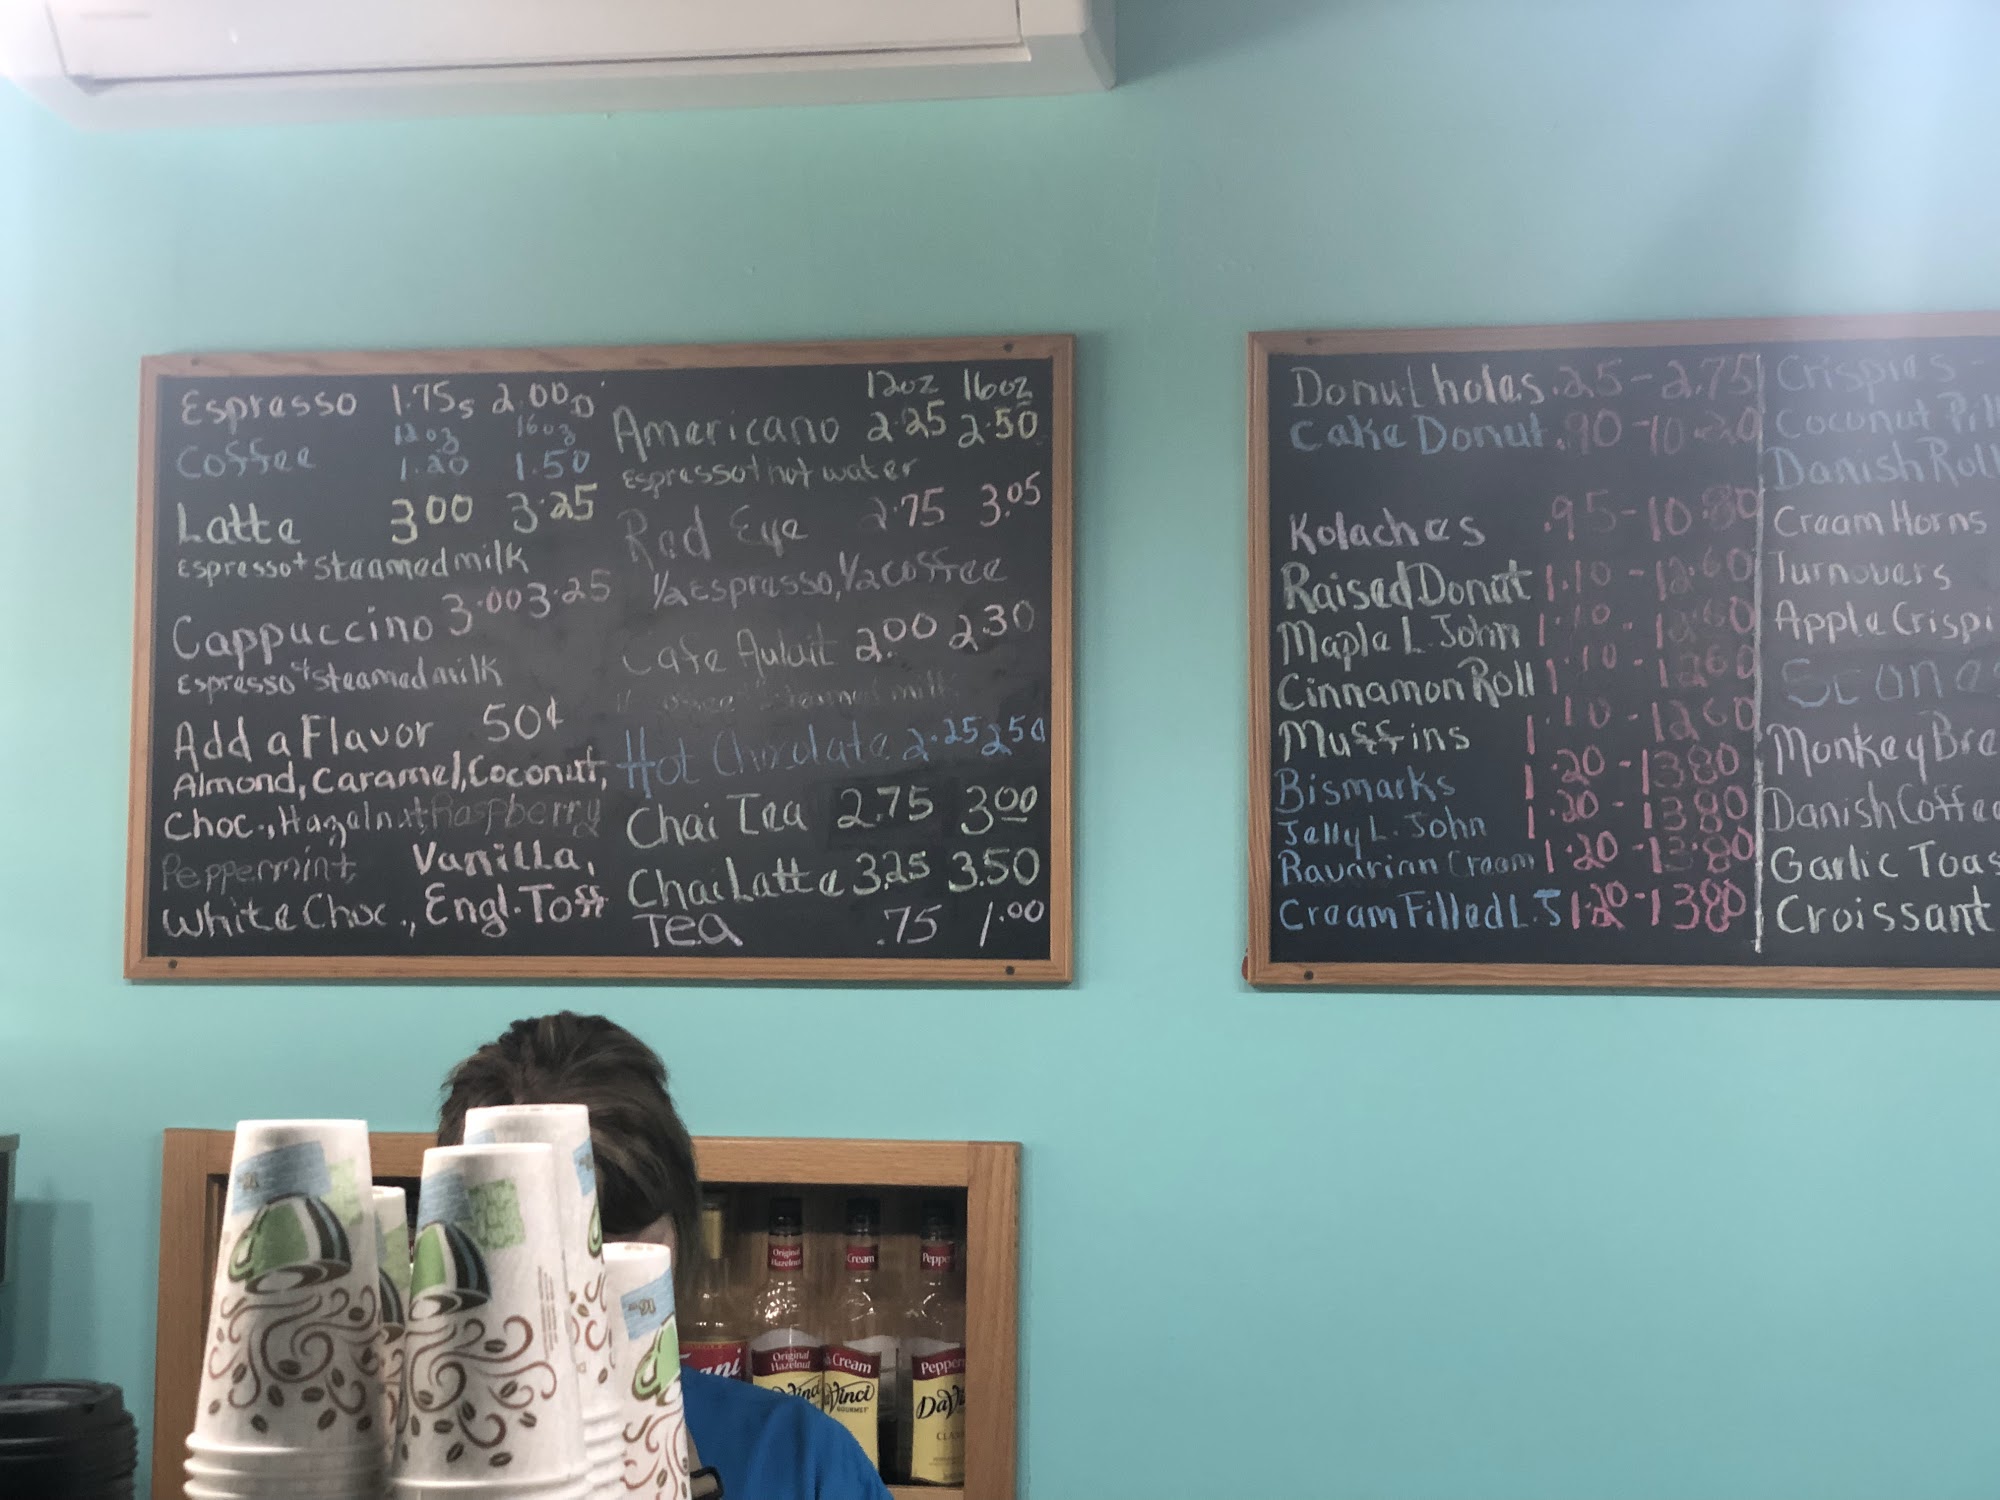 Espresso 1.75s 2.00D
12oz 16oz
Coffee 1.20 1.50
Latte 3.00 3.25
Espresso+Steamed milk
Cappuccino 3.00 3.25
Espresso+steamed milk
Add a Flavor 50¢
Almond, Caramel, Coconut,
Choc., Hazelnut, Raspberry
Peppermint, Vanilla,
White Choc., Engl. Toff
12oz 16oz
Americano 2.25 2.50
Espresso+hot water
Red Eye 2.75 3.05
1/2 Espresso, 1/2 coffee
Cafe Aulait 2.00 2.30
steamed milk
Hot Chocolate 2.25 2.50
Chai Tea 2.75 3.00
Chai Latte 3.25 3.50
Tea .75 1.00
Donut holes .25-2.75
Cake Donut .90-10.20
Kolaches .95-10.80
Raised Donut 1.10-12.60
Maple L. John 1.10-12.60
Cinnamon Roll 1.10-12.60
Muffins 1.10-12.60
Bismarks 1.20-13.80
Jelly L. John 1.20-13.80
Bavarian Cream 1.20-13.80
Cream Filled L.J 1.20-13.80
Crispies -
Coconut
Danish Roll
Cream Horns
Turnovers
Apple Crispi
Scones
Monkey Bre
Danish Coffee
Garlic Toas
Croissant
Original
Hazelnut
Cream
Pepper
Original
Hazelnut
Cream
DaVinci
GOURMET
Pepper
DaVi
CLA